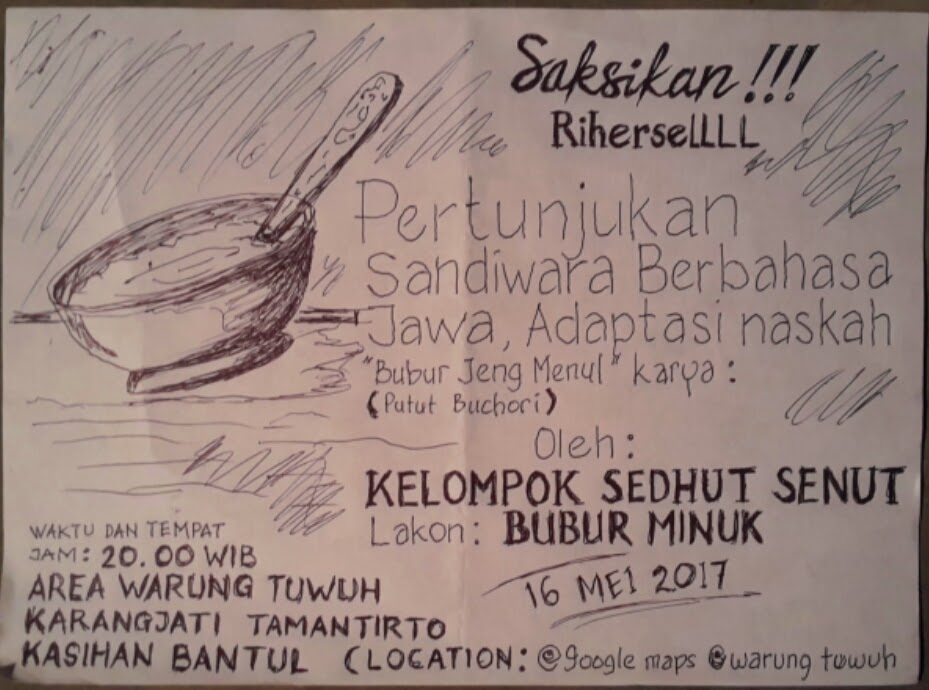 Saksikan !!!
RihersellLL
Pertunjukan
Sandiwara Berbahasa
Jawa, Adaptasi naskah
"Bubur Jeng Menul" karya :
(Putut Buchori)
Oleh :
KELOMPOK SEDHUT SENUT
Lakon : BUBUR MINUK
16 MEI 2017
WAKTU DAN TEMPAT
JAM : 20.00 WIB
AREA WARUNG TUWUH
KARANGJATI TAMANTIRTO
KASIHAN BANTUL (LOCATION : @google maps @warung tuwuh